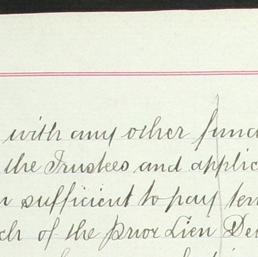 with any other fund
the Trustees and applic
sufficient to pay ten
ch of the prior Lien De